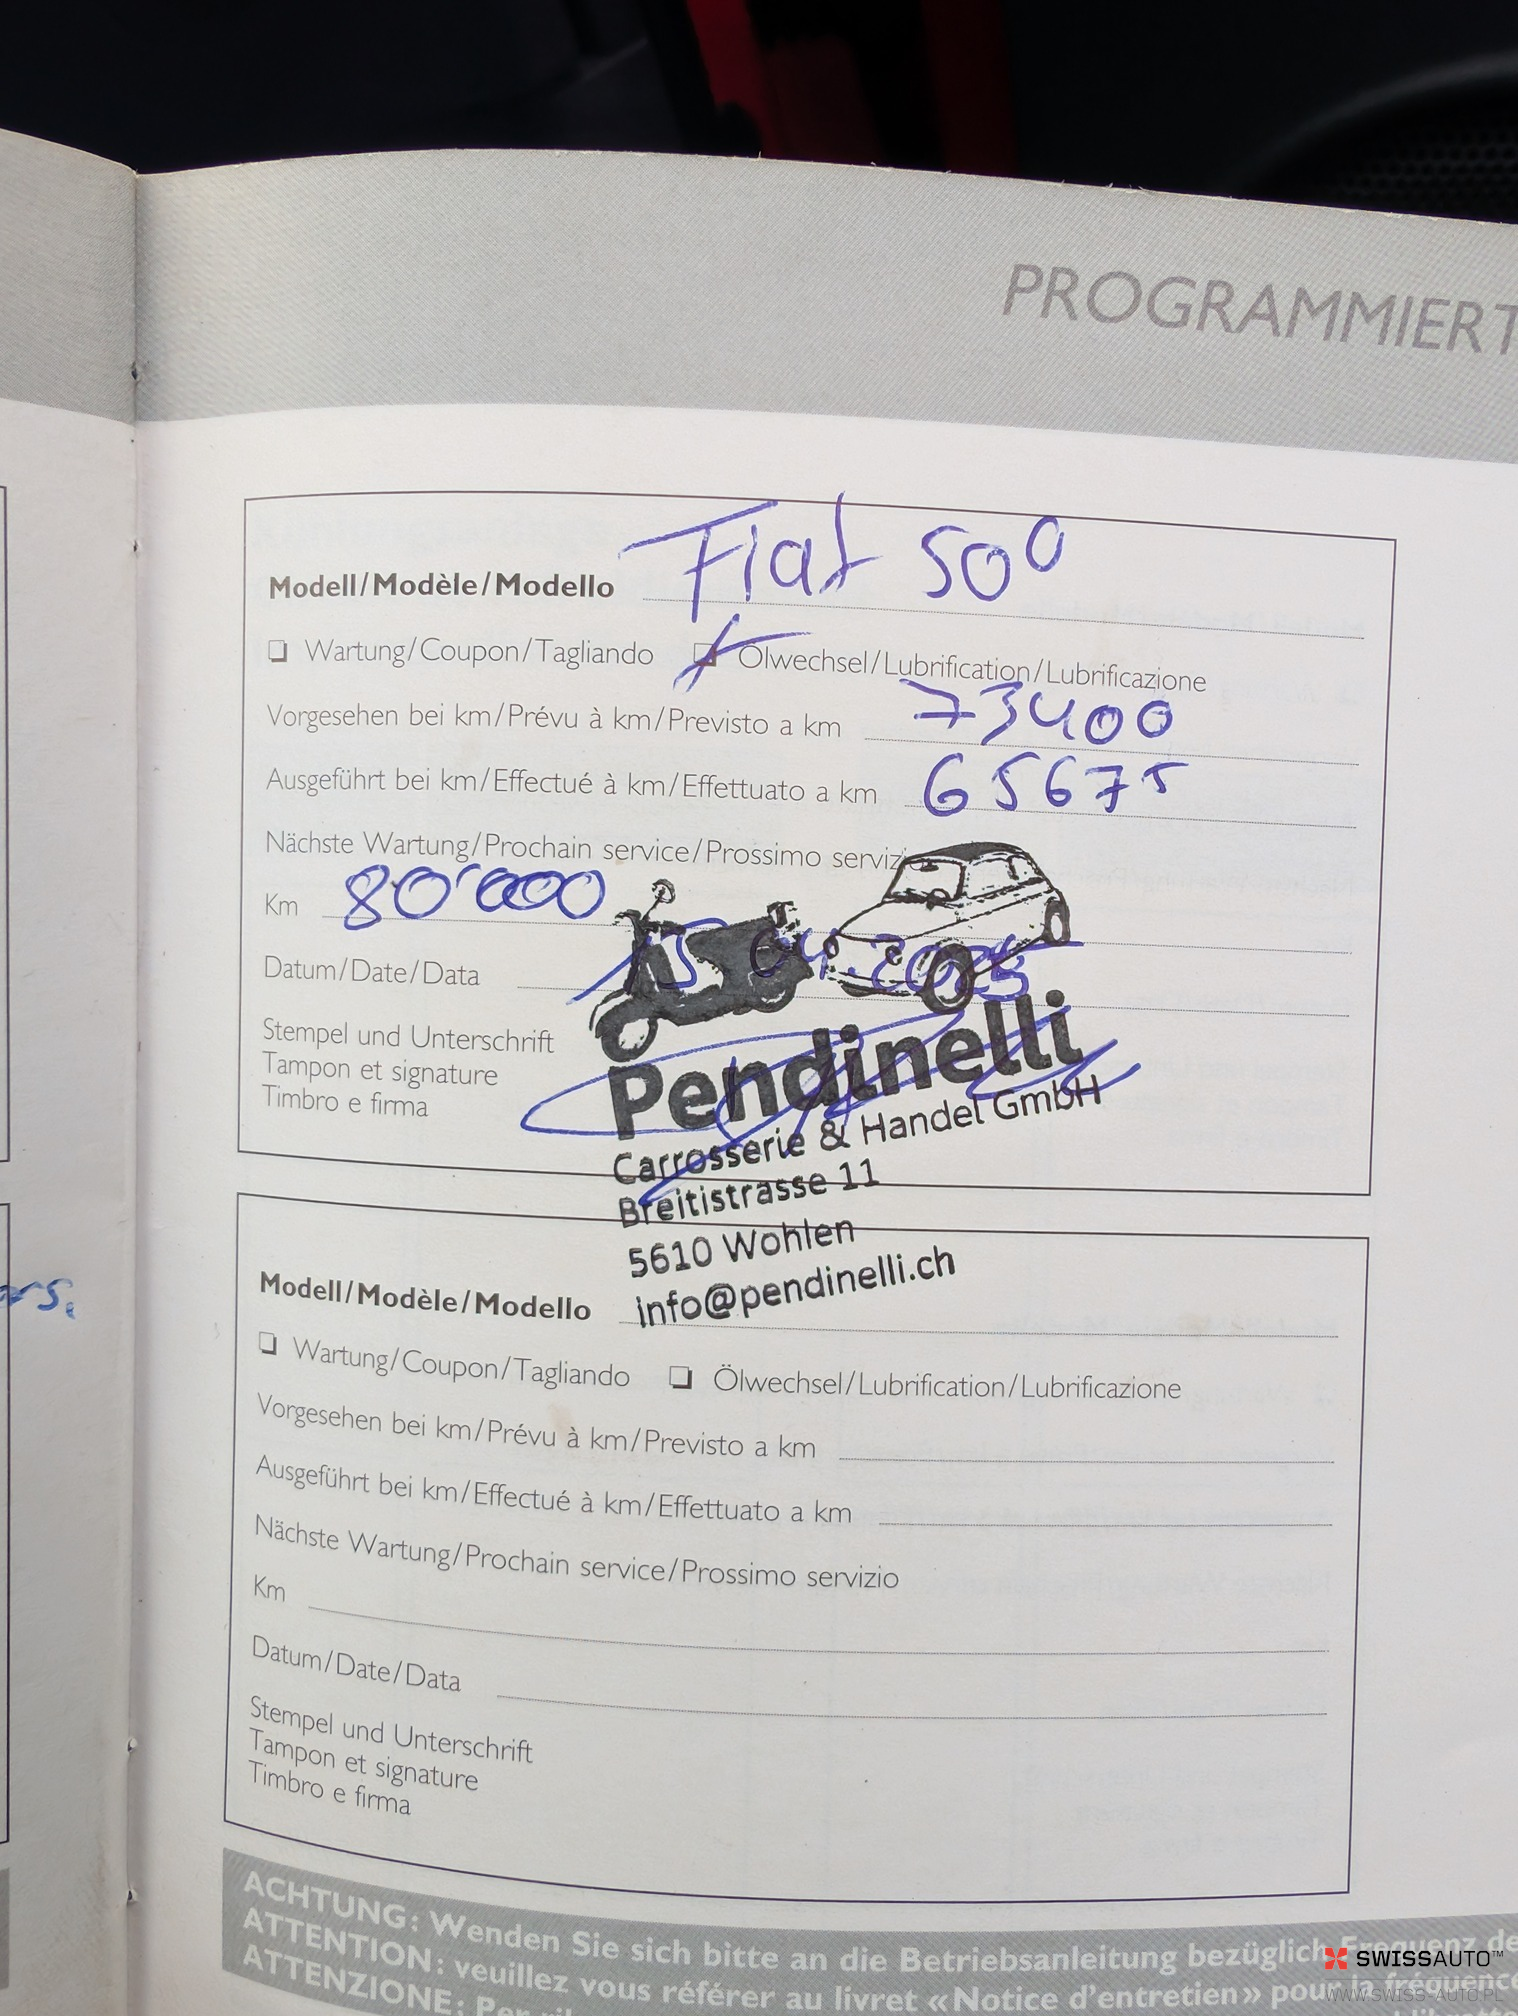 PROGRAMMIERT
Modell/Modèle/Modello Fiat 500
Wartung/Coupon/Tagliando Ölwechsel/Lubrification/Lubrificazione
Vorgesehen bei km/Prévu à km/Previsto a km 73400
Ausgeführt bei km/Effectué à km/Effettuato a km 65675
Nächste Wartung/Prochain service/Prossimo servizio
Km 80'000
Datum/Date/Data 15.04.2025
Stempel und Unterschrift
Tampon et signature
Timbro e firma
Pendinelli
Carrosserie & Handel GmbH
Breitistrasse 11
5610 Wohlen
info@pendinelli.ch
Modell/Modèle/Modello
Wartung/Coupon/Tagliando Ölwechsel/Lubrification/Lubrificazione
Vorgesehen bei km/Prévu à km/Previsto a km
Ausgeführt bei km/Effectué à km/Effettuato a km
Nächste Wartung/Prochain service/Prossimo servizio
Km
Datum/Date/Data
Stempel und Unterschrift
Tampon et signature
Timbro e firma
ACHTUNG: Wenden Sie sich bitte an die Betriebsanleitung bezüglich Frequenz de
ATTENTION: veuillez vous référer au livret «Notice d'entretien» pour la fréquence
ATTENZIONE: Per
SWISSAUTO™
WWW.SWISS-AUTO.PL